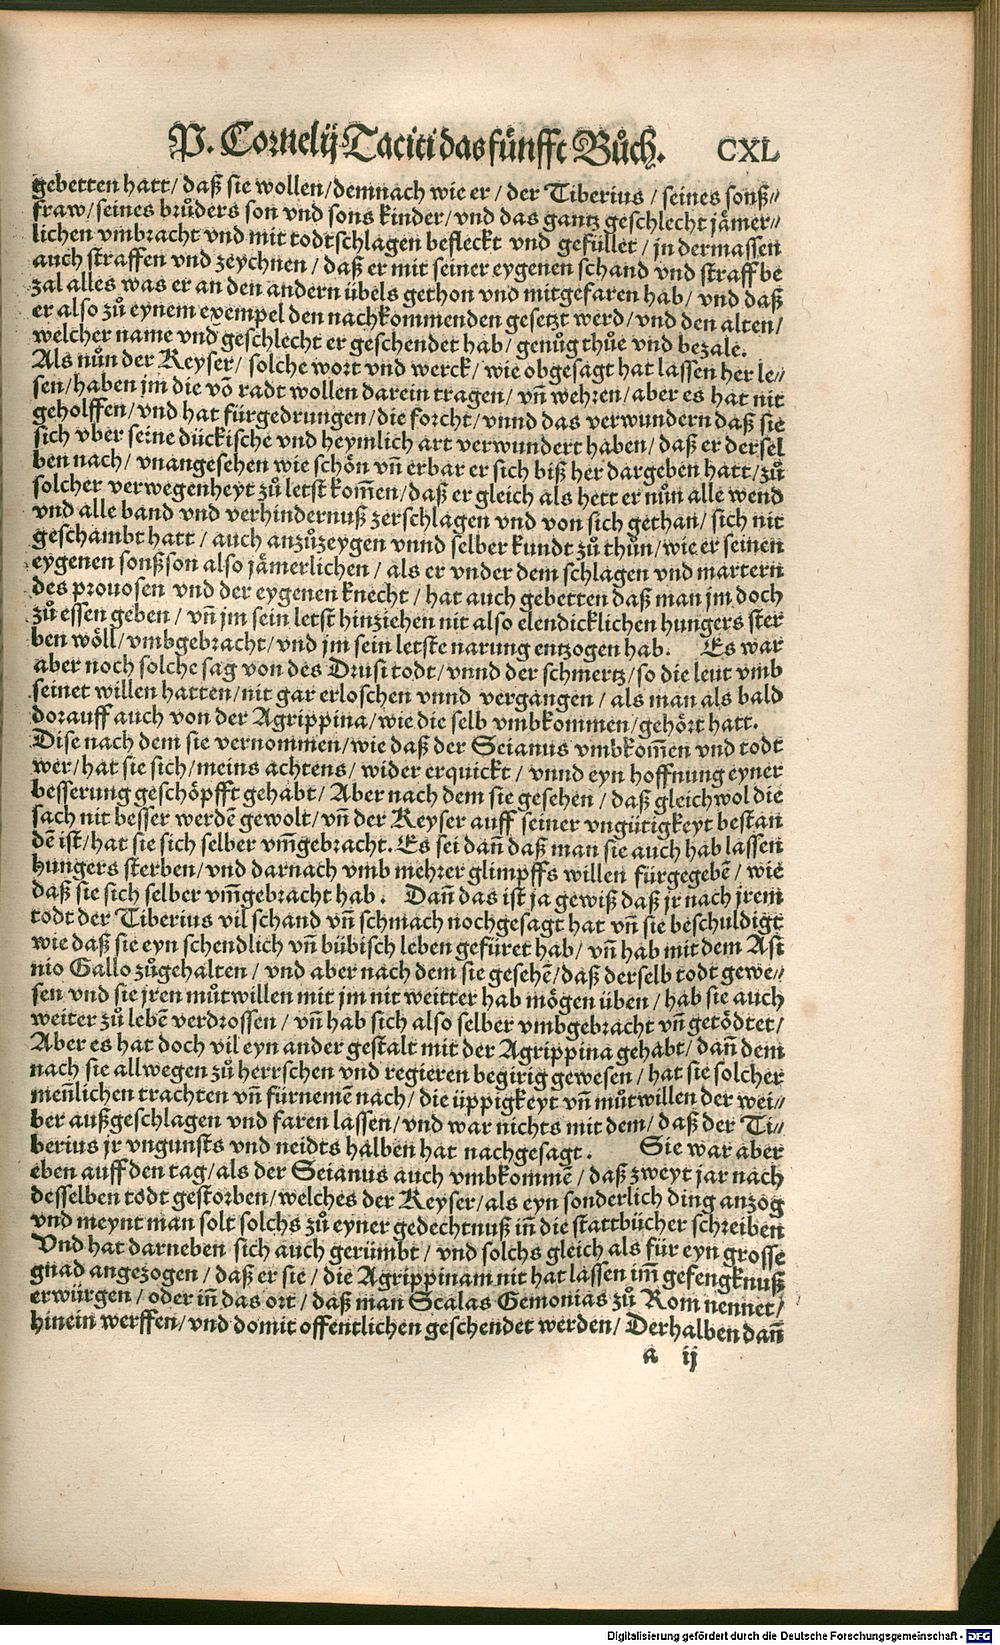 P. Cornelij Taciti das fünfft Bůch. CXL
gebetten hatt/ daß sie wollen/demnach wie er/ der Tiberius/ seines sonß⸗
fraw/seines brůders son vnd sons kinder/vnd das gantz geschlecht jämer⸗
lichen vmbracht vnd mit todtschlagen befleckt vnd gefüllet/ jn dermassen
auch straffen vnd zeychnen/ daß er mit seiner eygenen schand vnd straff be
zal alles was er an den andern übels gethon vnd mitgefaren hab/ vnd daß
er also zů eynem exempel den nachkommenden gesetzt werd/vnd den alten/
welcher name vnd geschlecht er geschendet hab/ genůg thůe vnd bezale.
Als nůn der Keyser/ solche wort vnd werck/ wie obgesagt hat lassen her le⸗
sen/haben jm die võ radt wollen darein tragen/ vñ wehren/aber es hat nit
geholffen/vnd hat fürgedrungen/die forcht/vnnd das verwundern daß sie
sich vber seine dückische vnd heymlich art verwundert haben/ daß er dersel
ben nach/ vnangesehen wie schön vñ erbar er sich biß her dargeben hatt/zů
solcher verwegenheyt zů letst kom̃en/daß er gleich als hett er nůn alle wend
vnd alle band vnd verhindernuß zerschlagen vnd von sich gethan/ sich nit
geschambt hatt/ auch anzůzeygen vnnd selber kundt zů thůn/wie er seinen
eygenen sonß son also jämerlichen/ als er vnder dem schlagen vnd martern
des prouosen vnd der eygenen knecht/ hat auch gebetten daß man jm doch
zů essen geben/ vñ jm sein letst hinziehen nit also elendicklichen hungers ster
ben wöll/vmbgebracht/vnd jm sein letste narung entzogen hab. Es war
aber noch solche sag von des Drusi todt/vnnd der schmertz/so die leut vmb
seinet willen hatten/nit gar erloschen vnnd vergangen/ als man als bald
dorauff auch von der Agrippina/wie die selb vmbkommen/gehört hatt.
Dise nach dem sie vernommen/wie daß der Seianus vmbkom̃en vnd todt
wer/hat sie sich/meins achtens/ wider erquickt/ vnnd eyn hoffnung eyner
besserung geschöpfft gehabt/ Aber nach dem sie gesehen/ daß gleichwol die
sach nit besser werdẽ gewolt/vñ der Keyser auff seiner vngütigkeyt bestan
dẽ ist/hat sie sich selber vm̃gebracht. Es sei dañ daß man sie auch hab lassen
hungers sterben/vnd darnach vmb mehrer glimpffs willen fürgegebẽ/ wie
daß sie sich selber vm̃gebracht hab. Dañ das ist ja gewiß daß jr nach jrem
todt der Tiberius vil schand vñ schmach nochgesagt hat vñ sie beschuldigt
wie daß sie eyn schendlich vñ bübisch leben gefüret hab/ vñ hab mit dem Asi
nio Gallo zůgehalten/ vnd aber nach dem sie gesehẽ/daß derselb todt gewe⸗
sen vnd sie jren můtwillen mit jm nit weitter hab mögen üben/ hab sie auch
weiter zů lebẽ verdrossen/ vñ hab sich also selber vmbgebracht vñ getödtet/
Aber es hat doch vil eyn ander gestalt mit der Agrippina gehabt/ dañ dem
nach sie allwegen zů herrschen vnd regieren begirig gewesen/ hat sie solcher
meñlichen trachten vñ fürnemẽ nach/ die üppigkeyt vñ můtwillen der wei⸗
ber außgeschlagen vnd faren lassen/vnd war nichts mit dem/ daß der Ti⸗
berius jr vngunsts vnd neidts halben hat nachgesagt. Sie war aber
eben auff den tag/als der Seianus auch vmbkommẽ/ daß zweyt jar nach
desselben todt gestorben/welches der Keyser/als eyn sonderlich ding anzog
vnd meynt man solt solchs zů eyner gedechtnuß iñ die stattbücher schreiben
Vnd hat darneben sich auch gerümbt/ vnd solchs gleich als für eyn grosse
gnad angezogen/ daß er sie/ die Agrippinam nit hat lassen im̃ gefengknuß
erwürgen/ oder iñ das ort/ daß man Scalas Gemonias zů Rom nennet/
hinein werffen/vnd domit offentlichen geschendet werden/ Derhalben dañ
a ij
Digitalisierung gefördert durch die Deutsche Forschungsgemeinschaft - DFG